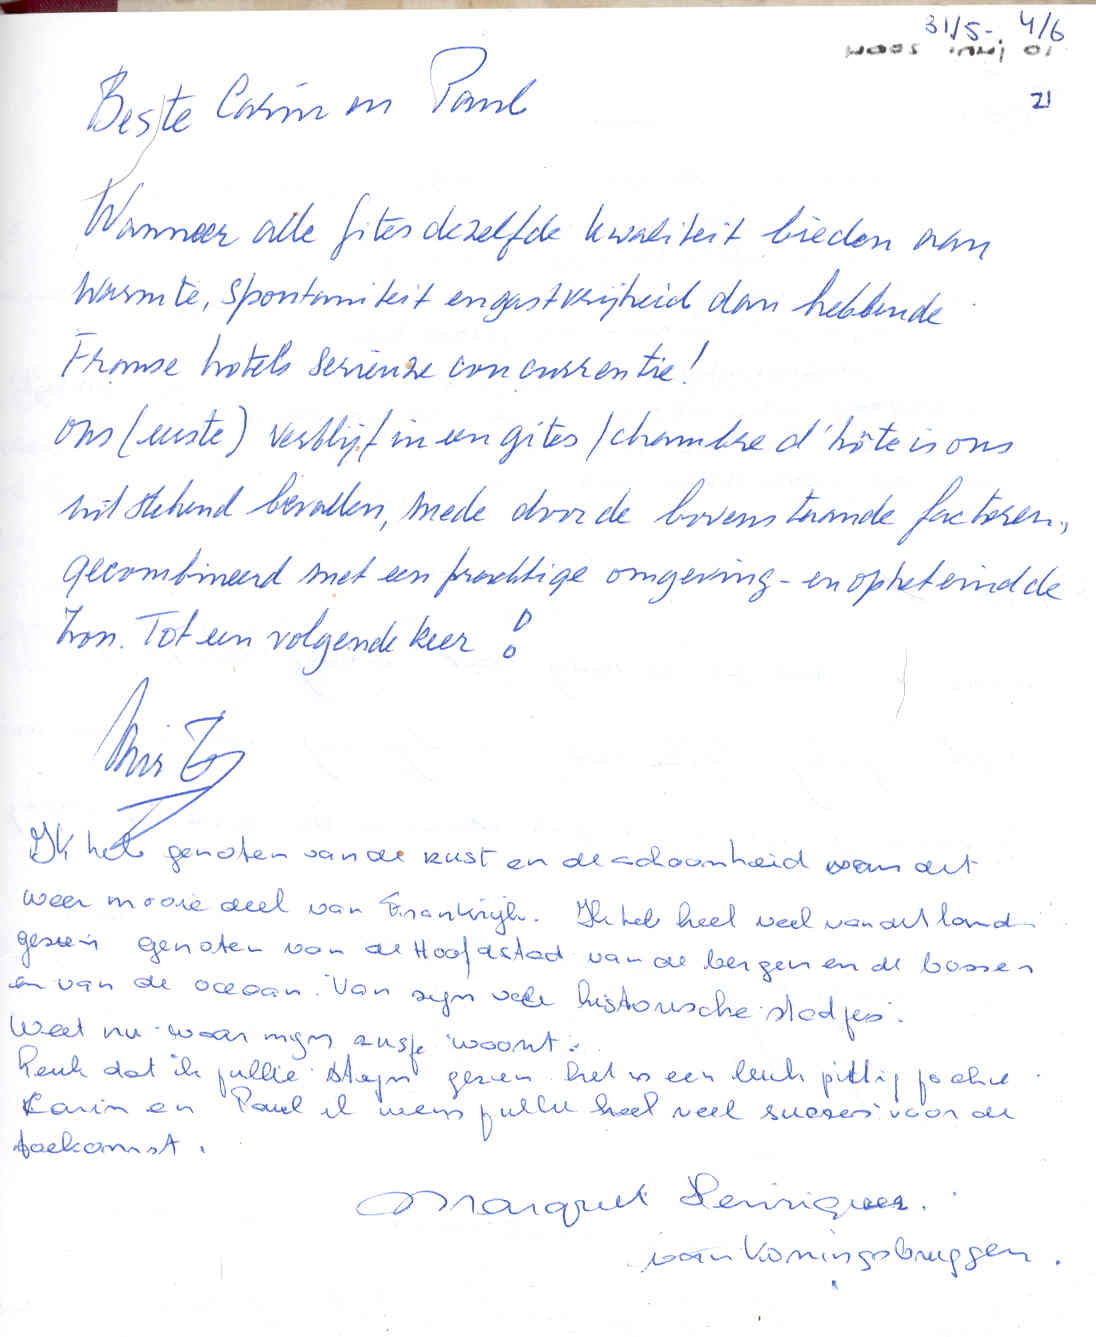 31/5 - 4/6
21
Beste Carin en Paul
Wanneer alle gites dezelfde kwaliteit bieden aan
warmte, spontaniteit en gastvrijheid dan hebben de
Franse hotels serieuze concurrentie!
Ons (eerste) verblijf in een gites / chambre d'hôte is ons
uitstekend bevallen, mede door de bovenstaande factoren,
gecombineerd met een prachtige omgeving - en op het eind de
zon. Tot een volgende keer!
Ik heb genoten van de rust en de schoonheid van dit
weer mooie deel van Frankrijk. Ik heb heel veel van dit land
gezien genoten van de Hoofdstad van de bergen en de bossen
en van de oceaan. Van zijn vele historische stadjes.
Weet nu waar mijn zusje woont.
Leuk dat ik jullie gezien het is een leuk pittig
Karin en Paul ik wens jullie heel veel succes voor de
toekomst.
Margriet Henriquez
van Koningsbruggen.